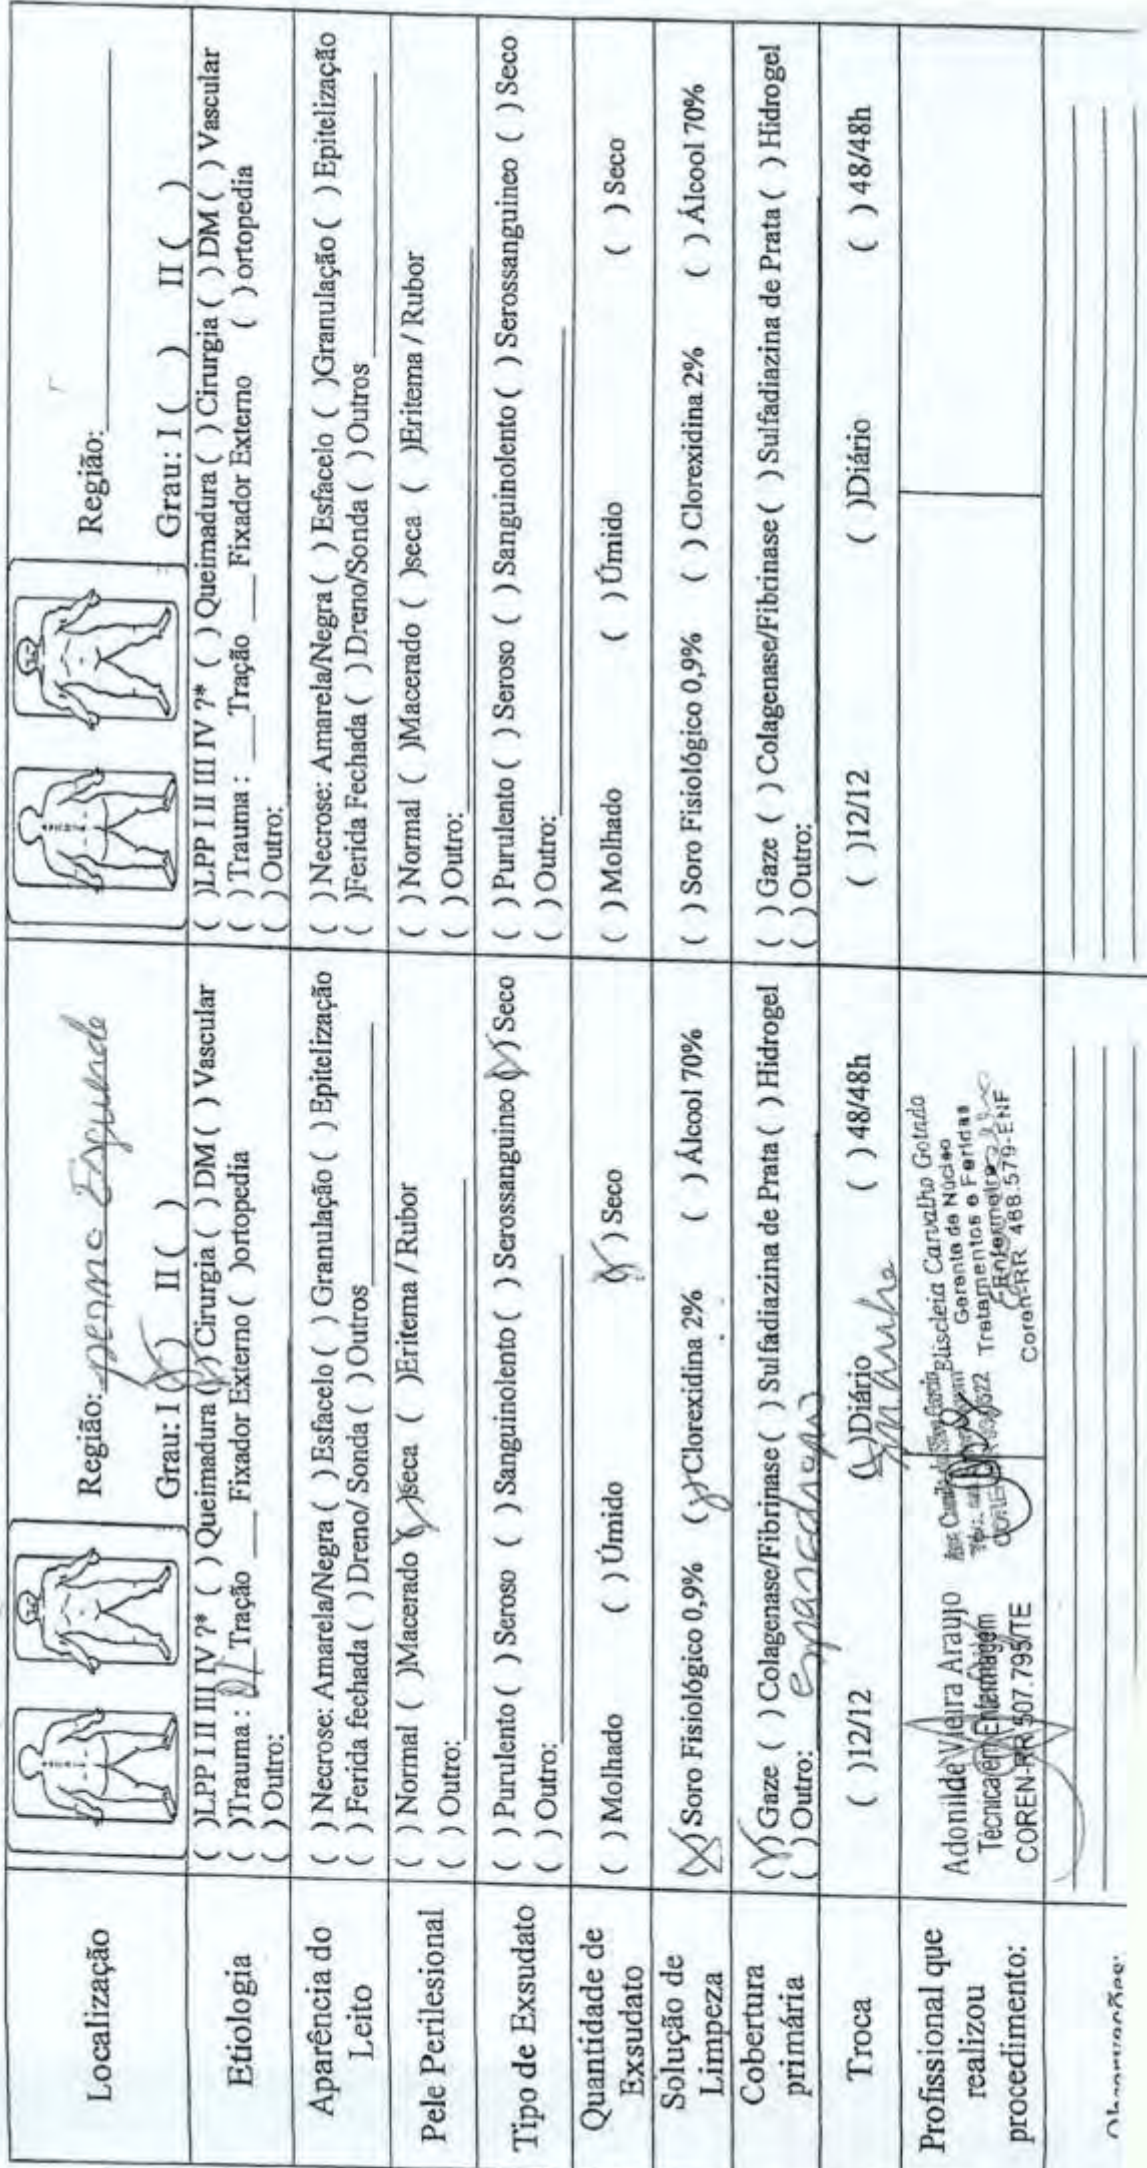 Localização
Região: perna Esquerda
Grau: I (X) II ( )
Região:
Grau: I ( ) II ( )
Etiologia
( )LPP I II III IV ?* ( ) Queimadura (X) Cirurgia ( ) DM ( ) Vascular
( )Trauma : Tração ___ Fixador Externo ( )ortopedia
( ) Outro:
( )LPP I II III IV ?* ( ) Queimadura ( ) Cirurgia ( ) DM ( ) Vascular
( ) Trauma : ___Tração ___ Fixador Externo ( ) ortopedia
( ) Outro:
Aparência do
Leito
( ) Necrose: Amarela/Negra ( ) Esfacelo ( ) Granulação ( ) Epitelização
( ) Ferida fechada ( ) Dreno/ Sonda ( ) Outros
( ) Necrose: Amarela/Negra ( ) Esfacelo ( )Granulação ( ) Epitelização
( )Ferida Fechada ( ) Dreno/Sonda ( ) Outros
Pele Perilesional
( ) Normal ( )Macerado (X)seca ( )Eritema / Rubor
( ) Outro:
( ) Normal ( )Macerado ( )seca ( )Eritema / Rubor
( ) Outro:
Tipo de Exsudato
( ) Purulento ( ) Seroso ( ) Sanguinolento ( ) Serossanguineo (X) Seco
( ) Outro:
( ) Purulento ( ) Seroso ( ) Sanguinolento ( ) Serossanguineo ( ) Seco
( ) Outro:
Quantidade de
Exsudato
( ) Molhado ( ) Úmido (X) Seco
( ) Molhado ( ) Úmido ( ) Seco
Solução de
Limpeza
(X) Soro Fisiológico 0,9% (X) Clorexidina 2% ( ) Álcool 70%
( ) Soro Fisiológico 0,9% ( ) Clorexidina 2% ( ) Álcool 70%
Cobertura
primária
(X) Gaze ( ) Colagenase/Fibrinase ( ) Sulfadiazina de Prata ( ) Hidrogel
( ) Outro: esparadrapo
( ) Gaze ( ) Colagenase/Fibrinase ( ) Sulfadiazina de Prata ( ) Hidrogel
( ) Outro:
Troca
( )12/12 (X)Diário ( ) 48/48h
manhã
( )12/12 ( )Diário ( ) 48/48h
Profissional que
realizou
procedimento:
Adonilde Vieira Araujo
Técnica em Enfermagem
COREN-RR 507.795/TE
Eliscleia Carvalho Gotado
Gerente de Núcleo
Tratamentos e Feridas
Enfermeira
Coren-RR 468.579-ENF